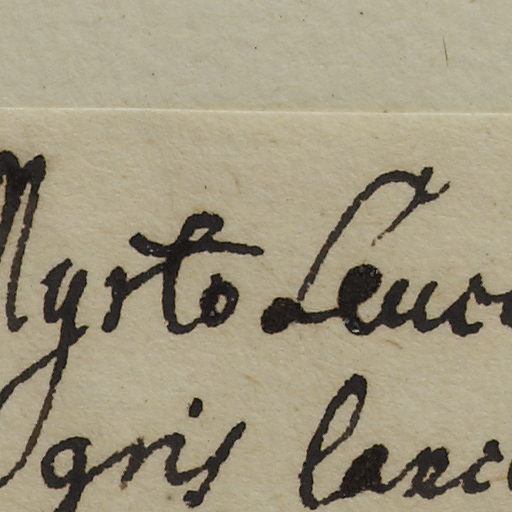 Myrto Leuc
gris lanc